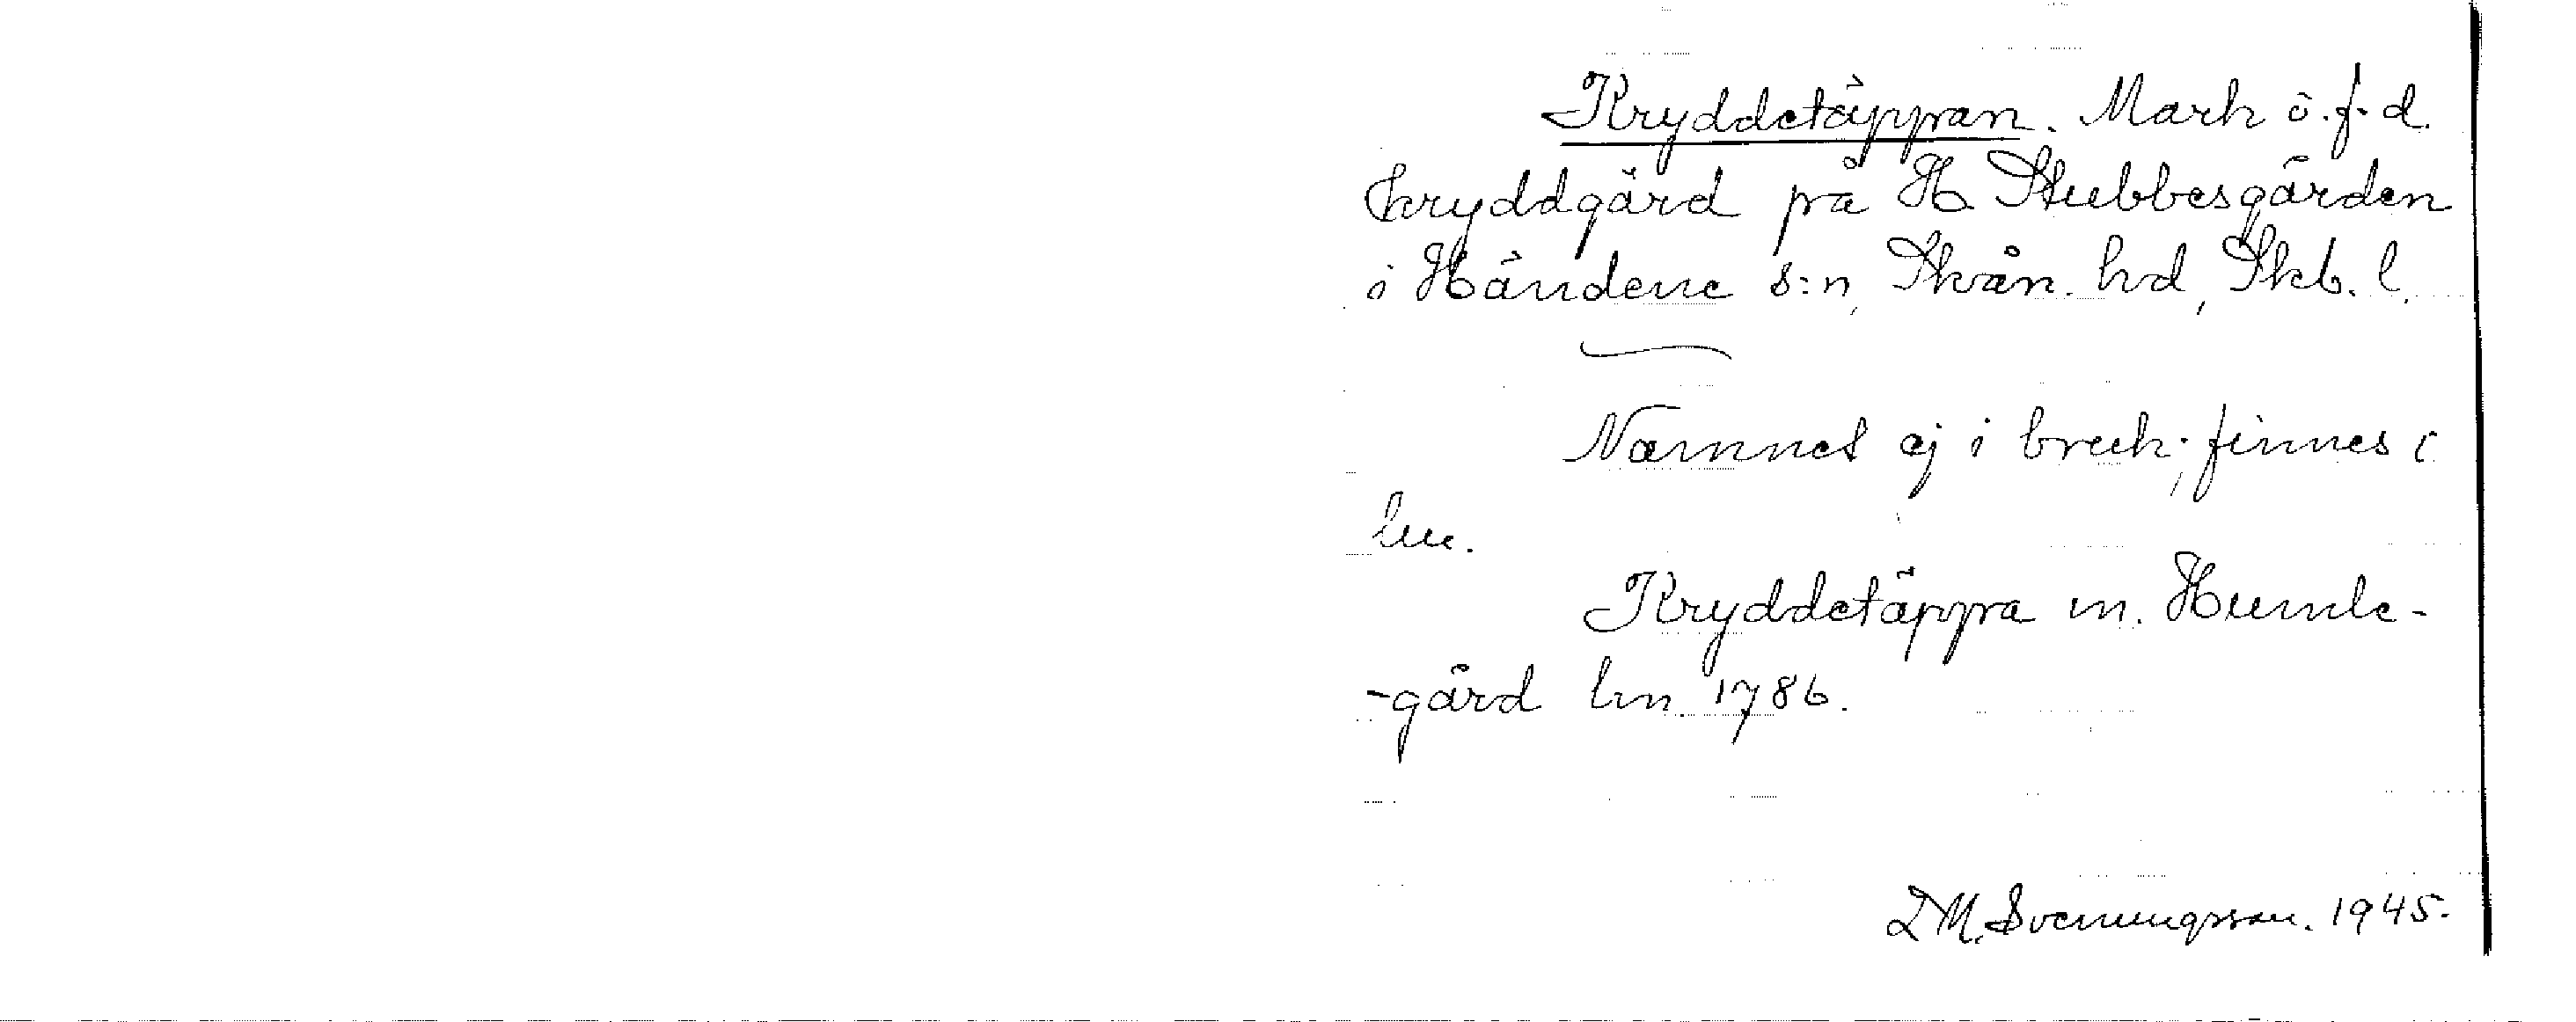 Kryddetäppan. Mark o. f. d.
kryddgård på H Stubbesgården
i Händene s:n, Skån. hd, Skb. l.
Namnet ej i bruk; finnes i
lm.
Kryddetäppa m. Humle-
-gård lm. 1786.
D M. Svenungsson. 1945.